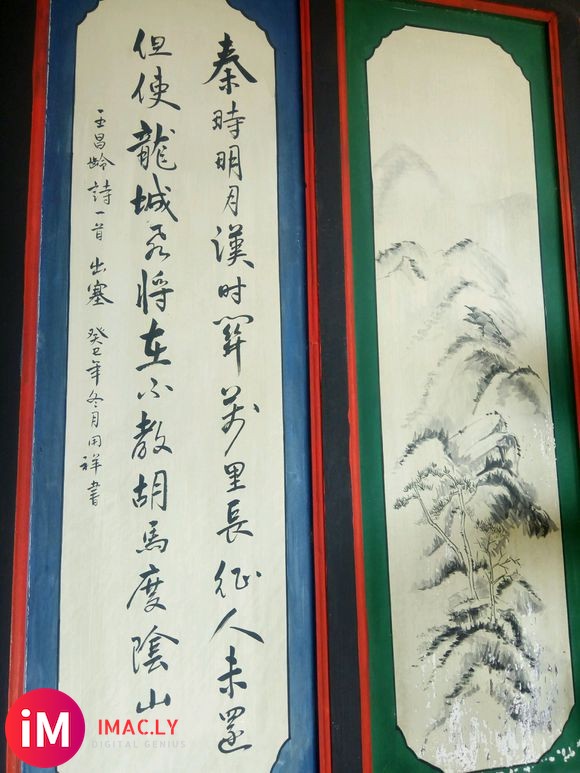 秦時明月漢时關萬里長征人未還
但使龍城飛將在不教胡馬度陰山
王昌齡詩一首 出塞 癸巳年冬月用祥書
iM
IMAC.LY
DIGITAL GENIUS